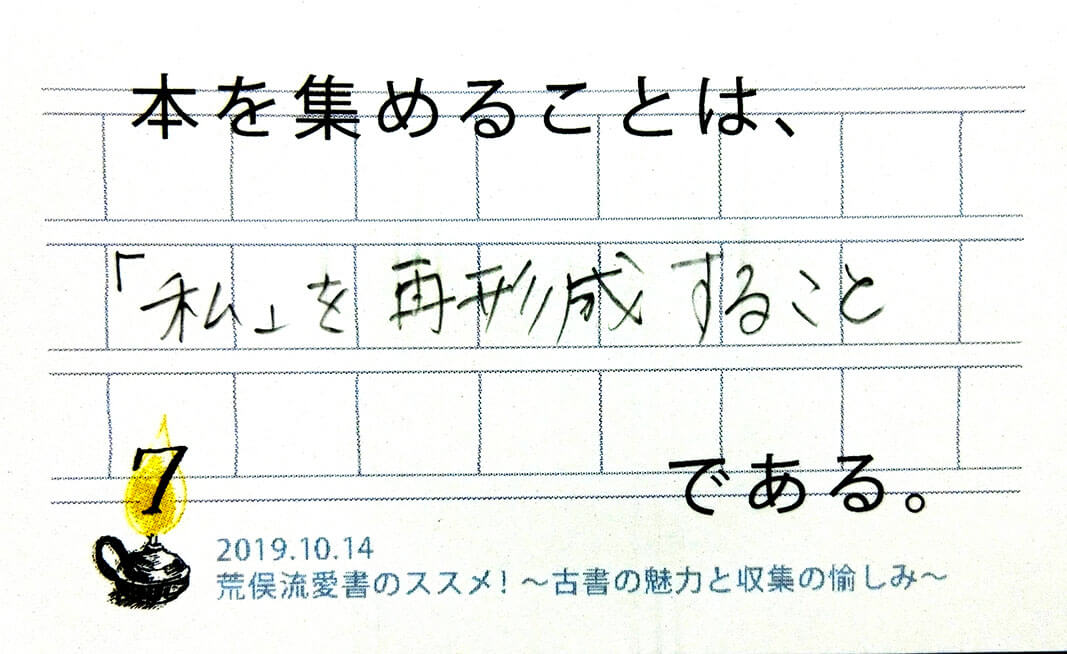 本を集めることは、
「私」を再形成すること
である。
7
2019.10.14
荒俣流愛書のススメ!～古書の魅力と収集の愉しみ～